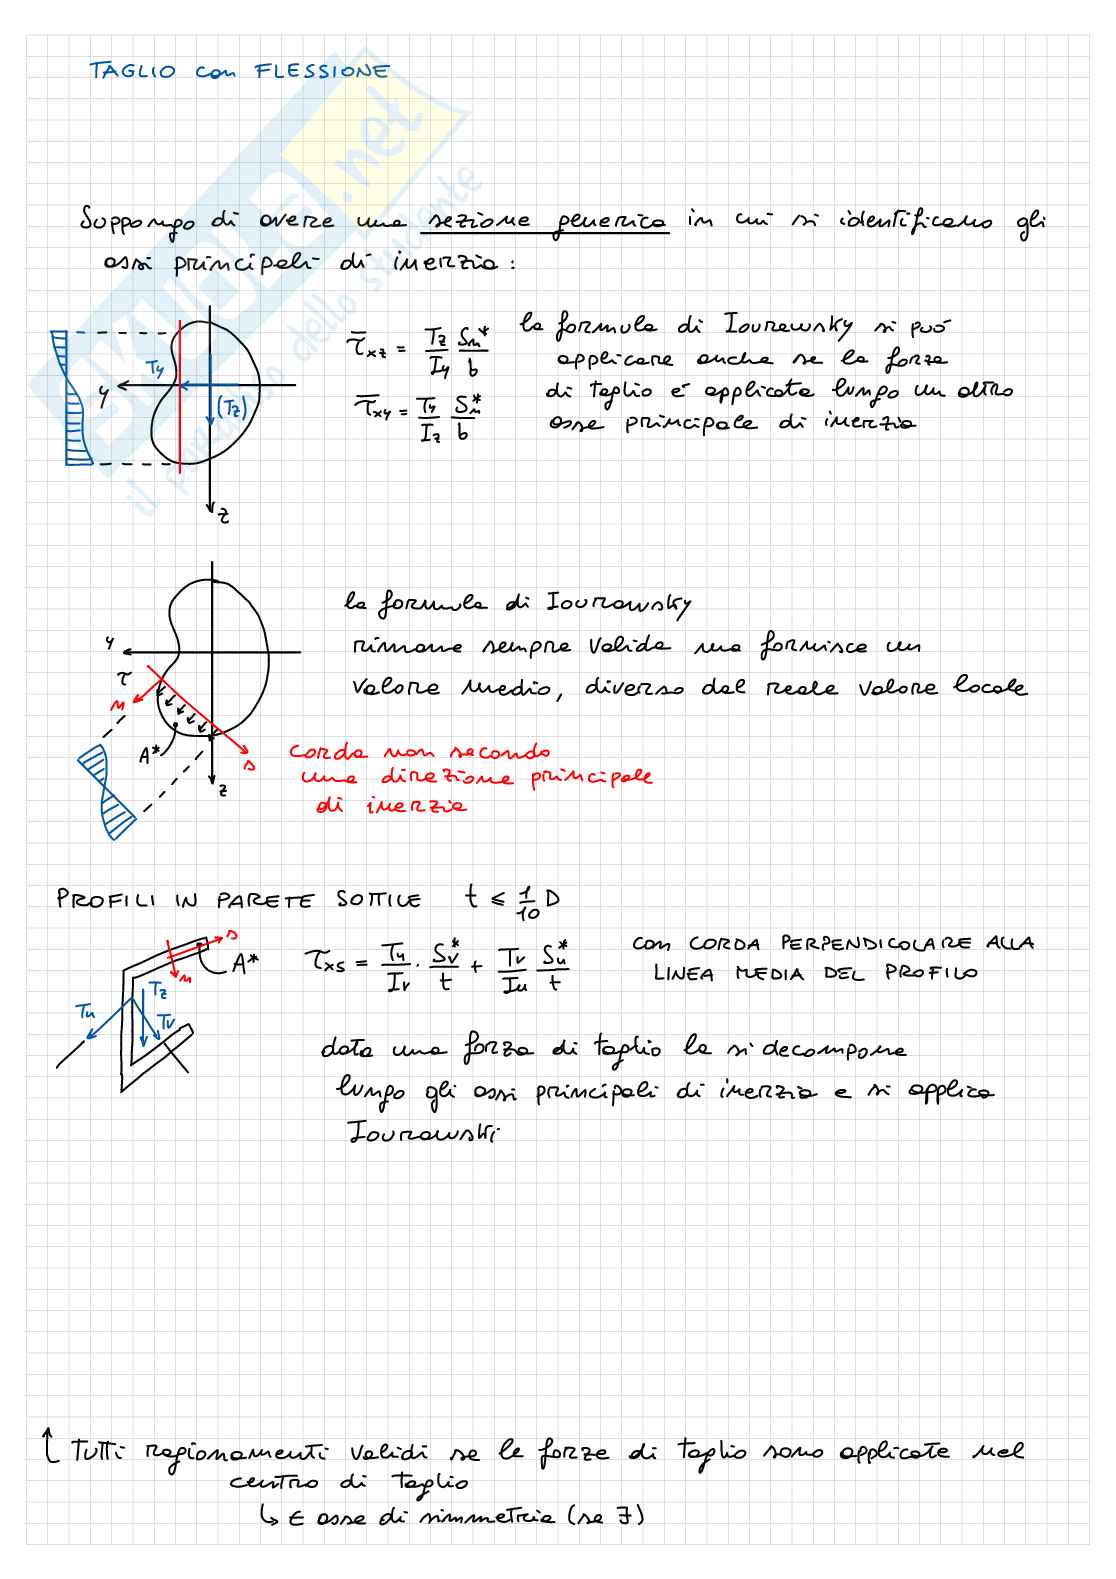 TAGLIO con FLESSIONE
Suppongo di avere una sezione generica in cui si identificano gli
assi principali di inerzia:
τ̅xz = Tz/Iy Sn*/b
τ̅xy = Ty/Iz Sn*/b
la formula di Iourawsky si può
applicare anche se la forza
di taglio é applicata lungo un altro
asse principale di inerzia
Ty
y
(Tz)
z
la formula di Iourowsky
rimane sempre valida ma fornisce un
valore medio, diverso dal reale valore locale
y
τ
n
A*
s
z
corda non secondo
una direzione principale
di inerzia
PROFILI IN PARETE SOTTILE t ≤ 1/10 D
τxs = Tu/Iv · Sv*/t + Tv/Iu Su*/t
con CORDA PERPENDICOLARE ALLA
LINEA MEDIA DEL PROFILO
s
A*
n
Tz
Tu
Tv
data una forza di taglio la si decompone
lungo gli assi principali di inerzia e si applica
Iourawski
Tutti ragionamenti validi se le forze di taglio sono applicate nel
centro di taglio
↳ ∈ asse di simmetria (se ∃)
SKUOLA.net
il paradiso dello studente